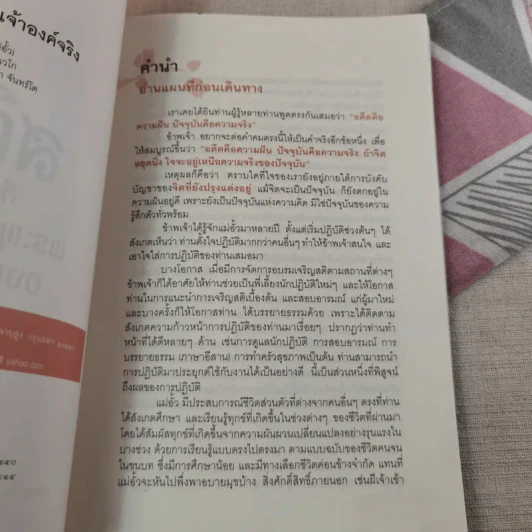 คำนำ
อ่านแผนที่ก่อนเดินทาง
เราเคยได้ยินท่านผู้รู้หลายท่านพูดตรงกันเสมอว่า "อดีตคือ
ความฝัน ปัจจุบันคือความจริง"
ข้าพเจ้า อยากจะต่อคำคมตรงนี้ให้เป็นคำจริงอีกข้อหนึ่ง เพื่อ
ให้สมบูรณ์ขึ้นว่า "อดีตคือความฝัน ปัจจุบันคือความจริง ถ้าจิต
หยุดนิ่ง ใจจะอยู่เหนือความจริงของปัจจุบัน"
เหตุผลก็คือว่า ตราบใดที่ใจของเรายังอยู่ภายใต้การบังคับ
บัญชาของจิตที่ยังปรุงแต่งอยู่ แม้จิตจะเป็นปัจจุบัน ก็ยังตกอยู่ใน
ความฝันอยู่ดี เพราะยังเป็นปัจจุบันแห่งความคิด มิใช่ปัจจุบันของความ
รู้สึกตัวทั่วพร้อม
ข้าพเจ้าได้รู้จักแม่อั๋วมาหลายปี ตั้งแต่เริ่มปฏิบัติช่วงต้นๆ ได้
สังเกตเห็นว่า ท่านตั้งใจปฏิบัติมากกว่าคนอื่นๆ ทำให้ข้าพเจ้าสนใจ และ
เอาใจใส่การปฏิบัติของท่านเสมอมา
บางโอกาส เมื่อมีการจัดการอบรมเจริญสติตามสถานที่ต่างๆ
ข้าพเจ้าก็ได้อาศัยให้ท่านช่วยเป็นพี่เลี้ยงนักปฏิบัติใหม่ๆ และให้โอกาส
ท่านในการแนะนำการเจริญสติเบื้องต้น และสอบอารมณ์ แก่ผู้มาใหม่
และบางครั้งก็ให้โอกาสท่าน ได้บรรยายธรรมด้วย เพราะได้ติดตาม
สังเกตความก้าวหน้าการปฏิบัติของท่านมาเรื่อยๆ ปรากฏว่าท่านทำ
หน้าที่ได้ดีหลายๆ ด้าน เช่นการดูแลนักปฏิบัติ การสอบอารมณ์ การ
บรรยายธรรม (ภาษาอีสาน) การทำครัวสุขภาพเป็นต้น ท่านสามารถนำ
การปฏิบัติมาประยุกต์ใช้กับงานได้เป็นอย่างดี นี้เป็นส่วนหนึ่งที่พิสูจน์
ถึงผลของการปฏิบัติ
แม่อั๋ว มีประสบการณ์ชีวิตส่วนตัวที่ต่างจากคนอื่นๆ ตรงที่ท่าน
ได้สังเกตศึกษา และเรียนรู้ทุกข์ที่เกิดขึ้นในช่วงต่างๆ ของชีวิตที่ผ่านมา
โดยได้สัมผัสทุกข์ที่เกิดขึ้นจากความผันผวนเปลี่ยนแปลงอย่างรุนแรงใน
บางช่วง ด้วยการเรียนรู้แบบตรงไปตรงมา ตามแบบฉบับของชีวิตคนจน
ในชนบท ซึ่งมีการศึกษาน้อย และมีทางเลือกชีวิตค่อนข้างจำกัด แทนที่
แม่อั๋วจะหันไปพึ่งพาอบายมุขบ้าง สิ่งศักดิ์สิทธิ์ภายนอก เช่นผีเจ้าเข้า